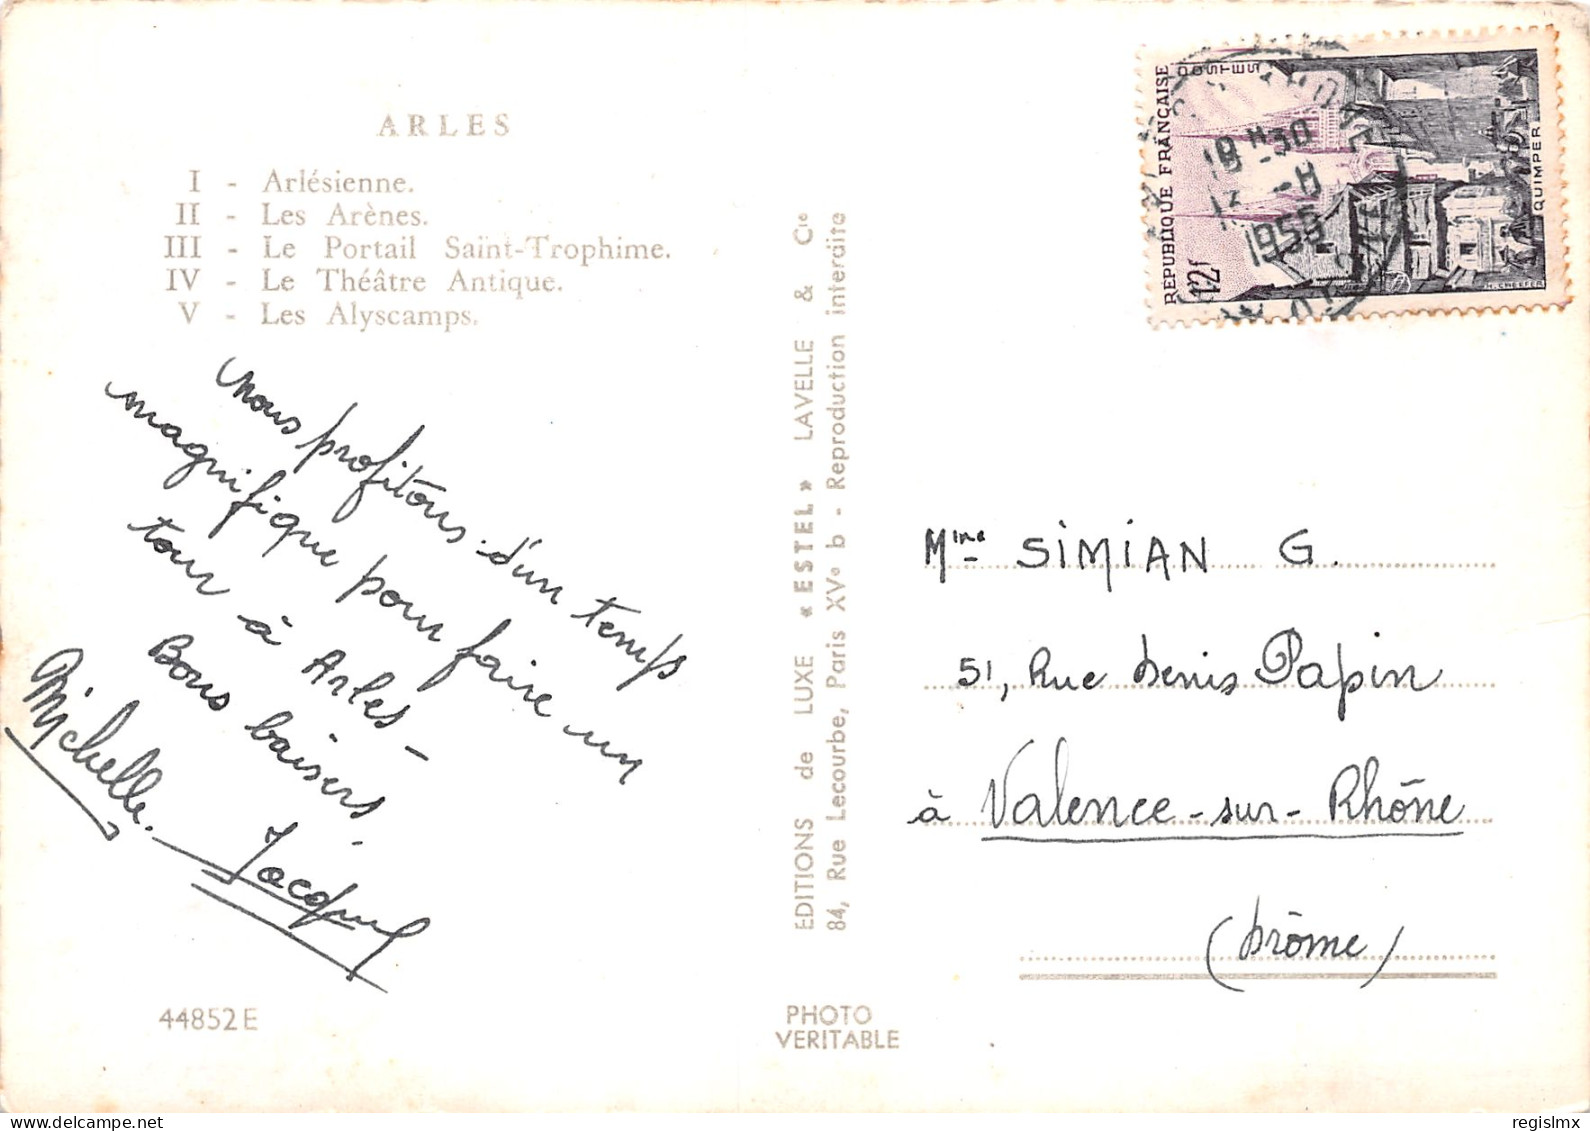 ARLES
I - Arlésienne.
II - Les Arènes.
III - Le Portail Saint-Trophime.
IV - Le Théâtre Antique.
V - Les Alyscamps.
Nous profitons d'un temps
magnifique pour faire un
tour à Arles -
Bons baisers.
Michelle. Jacques
44852 E
EDITIONS de LUXE « ESTEL » LAVELLE & Cie
84, Rue Lecourbe, Paris XVe b - Reproduction interdite
PHOTO
VERITABLE
REPUBLIQUE FRANÇAISE
POSTES
12f
QUIMPER
H. CHEFFER
18 H 30
1955
Mme SIMIAN G.
51, Rue Denis Papin
à Valence-sur-Rhône
(Drôme)
regislmx